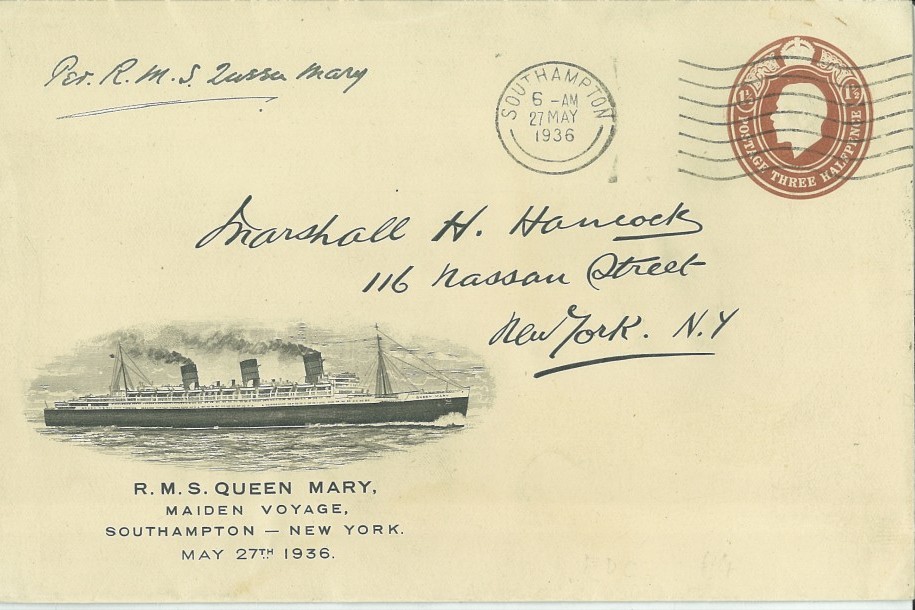 Per. R. M. S. Queen Mary
SOUTHAMPTON
6 - AM
27 MAY
1936
1½ 1½
POSTAGE THREE HALFPENCE
Marshall H. Hancock
116 Nassau Street
New York. N.Y
QUEEN MARY
R. M. S. QUEEN MARY,
MAIDEN VOYAGE,
SOUTHAMPTON — NEW YORK.
MAY 27TH 1936.